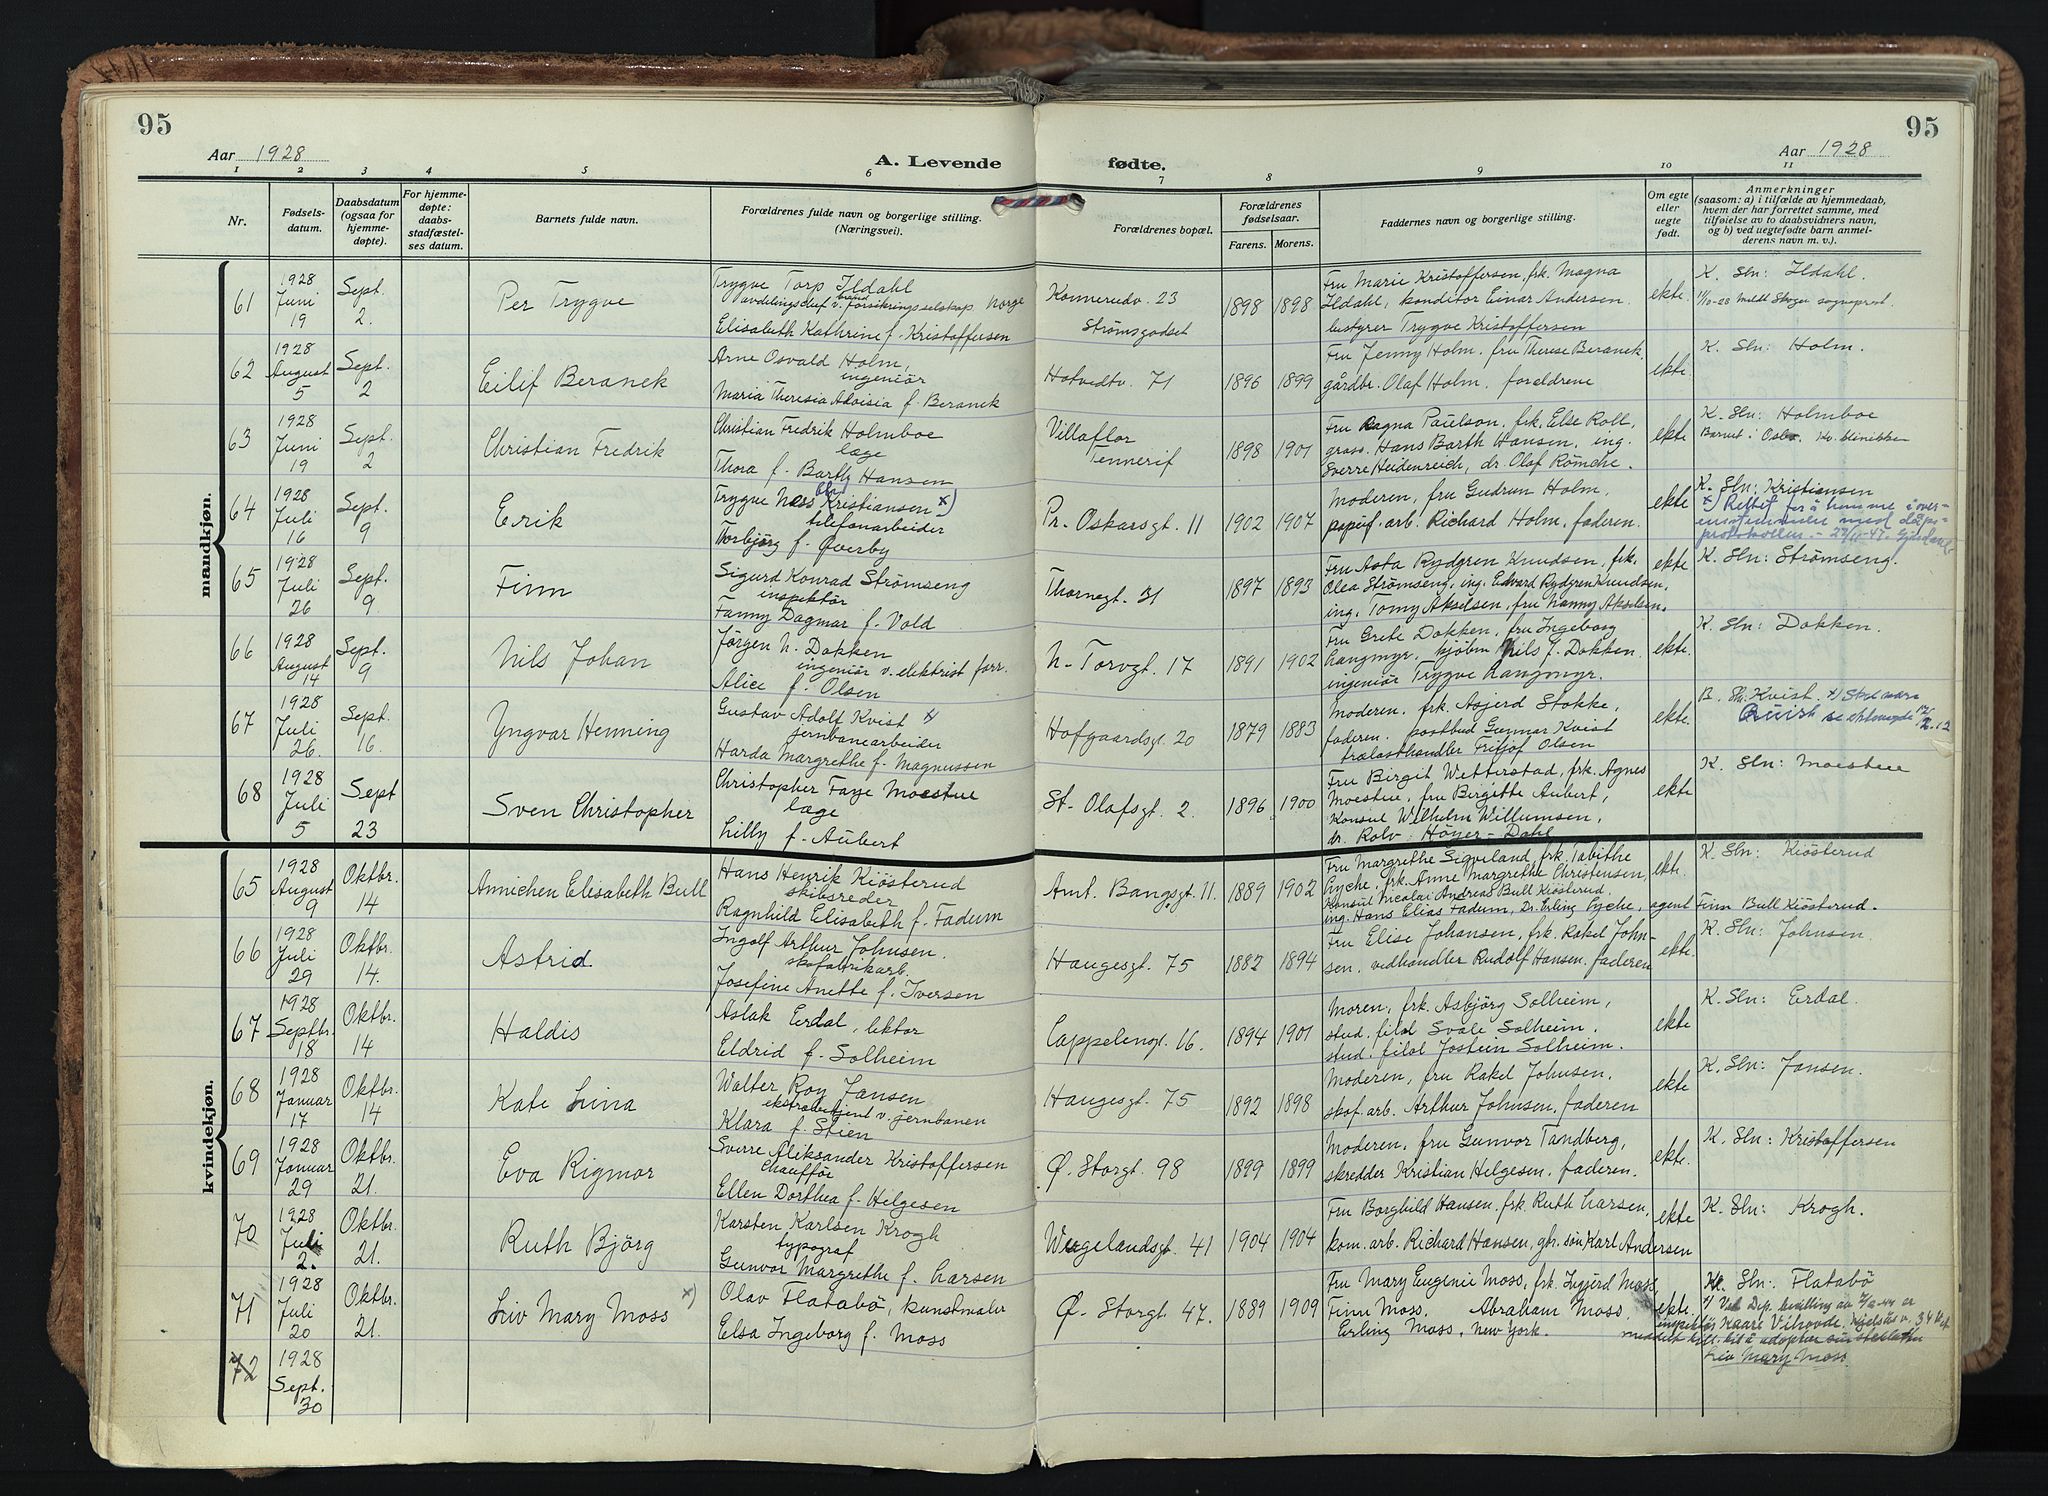 95
95
Aar 1928
A. Levende
fødte.
Aar 1928
1 2 3 4 5 6 7 8 9 10 11
Nr.
Fødsels-
datum.
Daabsdatum
(ogsaa for
hjemme-
døpte).
For hjemme-
døpte:
daabs-
stadfæstel-
ses datum.
Barnets fulde navn.
Forældrenes fulde navn og borgerlige stilling.
(Næringsvei).
Forældrenes bopæl.
Forældrenes
fødselsaar.
Farens. Morens.
Faddernes navn og borgerlige stilling.
Om egte
eller
uegte
født.
Anmerkninger
(saasom: a) i tilfælde av hjemmedaab,
hvem der har forrettet samme, med
tilføielse av to daabsvidners navn,
og b) ved uegtefødte barn anmel-
derens navn m. v.).
mandkjøn.
61
1928
Juni
19
Sept.
2.
Per Trygve
Trygve Torp Ildahl
avdelingschef v. brand forsikringsselskap. Norge
Elisabeth Kathrine f. Kristoffersen
Konnerudv. 23
Strømsgodset
1898 1898
Fru Marie Kristoffersen, frk. Magna
Ildahl, konditor Einar Andersen.
bestyrer Trygve Kristoffersen
ekte
K. Sln: Ildahl.
11/10-28 meldt Skoger sogneprest.
62
1928
August
5
Sept.
2
Eilif Beranek
Arne Osvald Holm,
ingeniör
Maria Theresia Aloisia f. Beranek
Hotvedtv. 71
1896 1899
Fru Jenny Holm. fru Therese Beranek
gårdbr. Olaf Holm. foreldrene
ekte
K. Sln: Holm.
63
1928
Juni
19
Sept.
2
Christian Fredrik
Christian Fredrik Holmboe
læge
Thora f. Barth Hansen
Villaflor
Tennerif
1898 1901
Fru Ragna Paulson. frk. Else Roll,
gross. Hans Barth Hansen, ing.
Sverre Heidenreich, dr. Olaf Römcke.
ekte
K. Sln: Holmboe
Barnet i Oslo. Kv. klinikken
64
1928
Juli
16
Sept.
9
Erik
Trygve Ness Kristiansen x)
telefonarbeider
Torbjörg f. Øverby
Pr. Oskarsgt. 11
1902 1907
Moderen, fru Gudrun Holm,
papirf. arb. Richard Holm, faderen.
ekte
K. Sln: Kristiansen
x) Rettet for å komme i over-
ensstemmelse med dåps-
protokollen.
65
1928
Juli
26
Sept.
9.
Finn
Sigurd Konrad Strömseng
inspektör
Fanny Dagmar f. Vold
Thornegt. 31
1897 1893
Fru Asta Rydgren Knudsen, frk.
Olea Strömseng, ing. Edvard Rydgren Knudsen,
ing. Tomy Akselsen, fru Nanny Akselsen.
ekte
K. Sln: Strömseng.
66
1928
August
14
Sept.
9
Nils Johan
Jörgen N. Dokken
ingeniör v. elektrist forr.
Alice f. Olsen
N. Torvgt. 17
1891 1902
Fru Greti Dokken, fru Ingeborg
Langmyr, kjöbm Nils J. Dokken
ingeniör Trygve Langmyr.
ekte.
K. Sln: Dokken.
67
1928
Juli
26.
Sept.
16.
Yngvar Henning
Gustav Adolf Kvist x
jernbanearbeider
Harda Margrethe f. Magnussen
Hofgaardsgt. 20
1879 1883
Moderen, frk. Asjerd Stokke,
faderen. postbud Gunnar Kvist
trælasthandler Fritjof Olsen
ekte.
B. Sln: Kvist. x) Skal være
Quist
68
1928
Juli
5
Sept
23
Sven Christopher
Christopher Faye Moestue
læge
Lilly f. Aubert
St. Olafsgt. 2.
1896 1900
Fru Birgit Wetterstad, frk. Agnes
Moestue, fru Birgitte Aubert,
Konsul Wilhelm Willumsen,
dr. Rolv Höyer-Dahl
ekte
K. Sln: Moestue
kvindekjøn.
65
1928
August
9
Oktbr.
14
Annichen Elisabeth Bull
Hans Henrik Kiösterud
skibsreder
Ragnhild Elisabeth f. Fadum
Amt. Bangsgt. 11.
1889 1902
Fru Margrethe Sigveland, frk. Tabithe
Lyche, frk. Anne Margrethe Christensen,
Konsul Nicolai Andreas Bull Kiösterud.
ing. Hans Elias Fadum, Dr. Erling Lyche, agent Finn Bull Kiösterud.
ekte.
K. Sln: Kiösterud
66
1928
Juli
29
Oktbr.
14.
Astrid
Ingolf Arthur Johnsen.
skofabrikarb.
Josefine Anette f. Iversen
Haugesgt. 75
1882 1894
Fru Elise Johansen, frk. Rakel John-
sen, vedhandler Rudolf Hansen, faderen
ekte.
K. Sln: Johnsen
67
1928
Septbr.
18
Oktbr.
14
Haldis
Aslak Erdal, lektor
Eldrid f. Solheim
Cappelengt. 16.
1894 1901
Moren, frk. Asbjörg Solheim,
stud. filol Svale Solheim.
stud. filol Jostein Solheim.
ekte
K. Sln: Erdal.
68
1928
Januar
17
Oktbr.
14
Kate Lina
Walter Roy Jansen
ekstrabetjent v. jernbanen
Klara f. Stien
Haugesgt. 75
1892 1898
Moderen, fru Rakel Johnsen,
skof. arb. Arthur Johnsen, faderen
ekte
K. Sln: Jansen.
69
1928
Januar
29
Oktbr.
21.
Eva Rigmor
Sverre Aleksander Kristoffersen
Chauffør
Ellen Dorthea f. Helgesen
Ø. Storgt. 98
1899 1899
Moderen, fru Gunvor Tandberg,
skredder Kristian Helgesen. faderen.
ekte.
K. Sln: Kristoffersen
70
1928
Juli
2.
Oktbr.
21.
Ruth Björg
Karsten Karlsen Krogh
typograf
Gunvor Margrethe f. Larsen
Wergelandsgt. 41
1904 1904
Fru Borghild Hansen, frk Ruth Larsen,
kom. arb. Richard Hansen, gbr. sön Karl Andersen
ekte
K. Sln: Krogh.
71
1928
Juli
20
Oktbr.
21.
Liv Mary Moss x)
Olav Flatabö, kunstmaler
Elsa Ingeborg f. Moss
Ø. Storgt. 47.
1889 1909
Fru Mary Eugenie Moss, frk. Ingjerd Moss,
Finn Moss, Abraham Moss,
Erling Moss, New York.
ekte.
Kl. Sln: Flatabö
x) Ved Dep. bevilling av
inspektör Kaare Vihovde, Kjelsås v.
meddelt till. til å adoptere sin stedatter
Liv Mary Moss
72
1928
Sept.
30